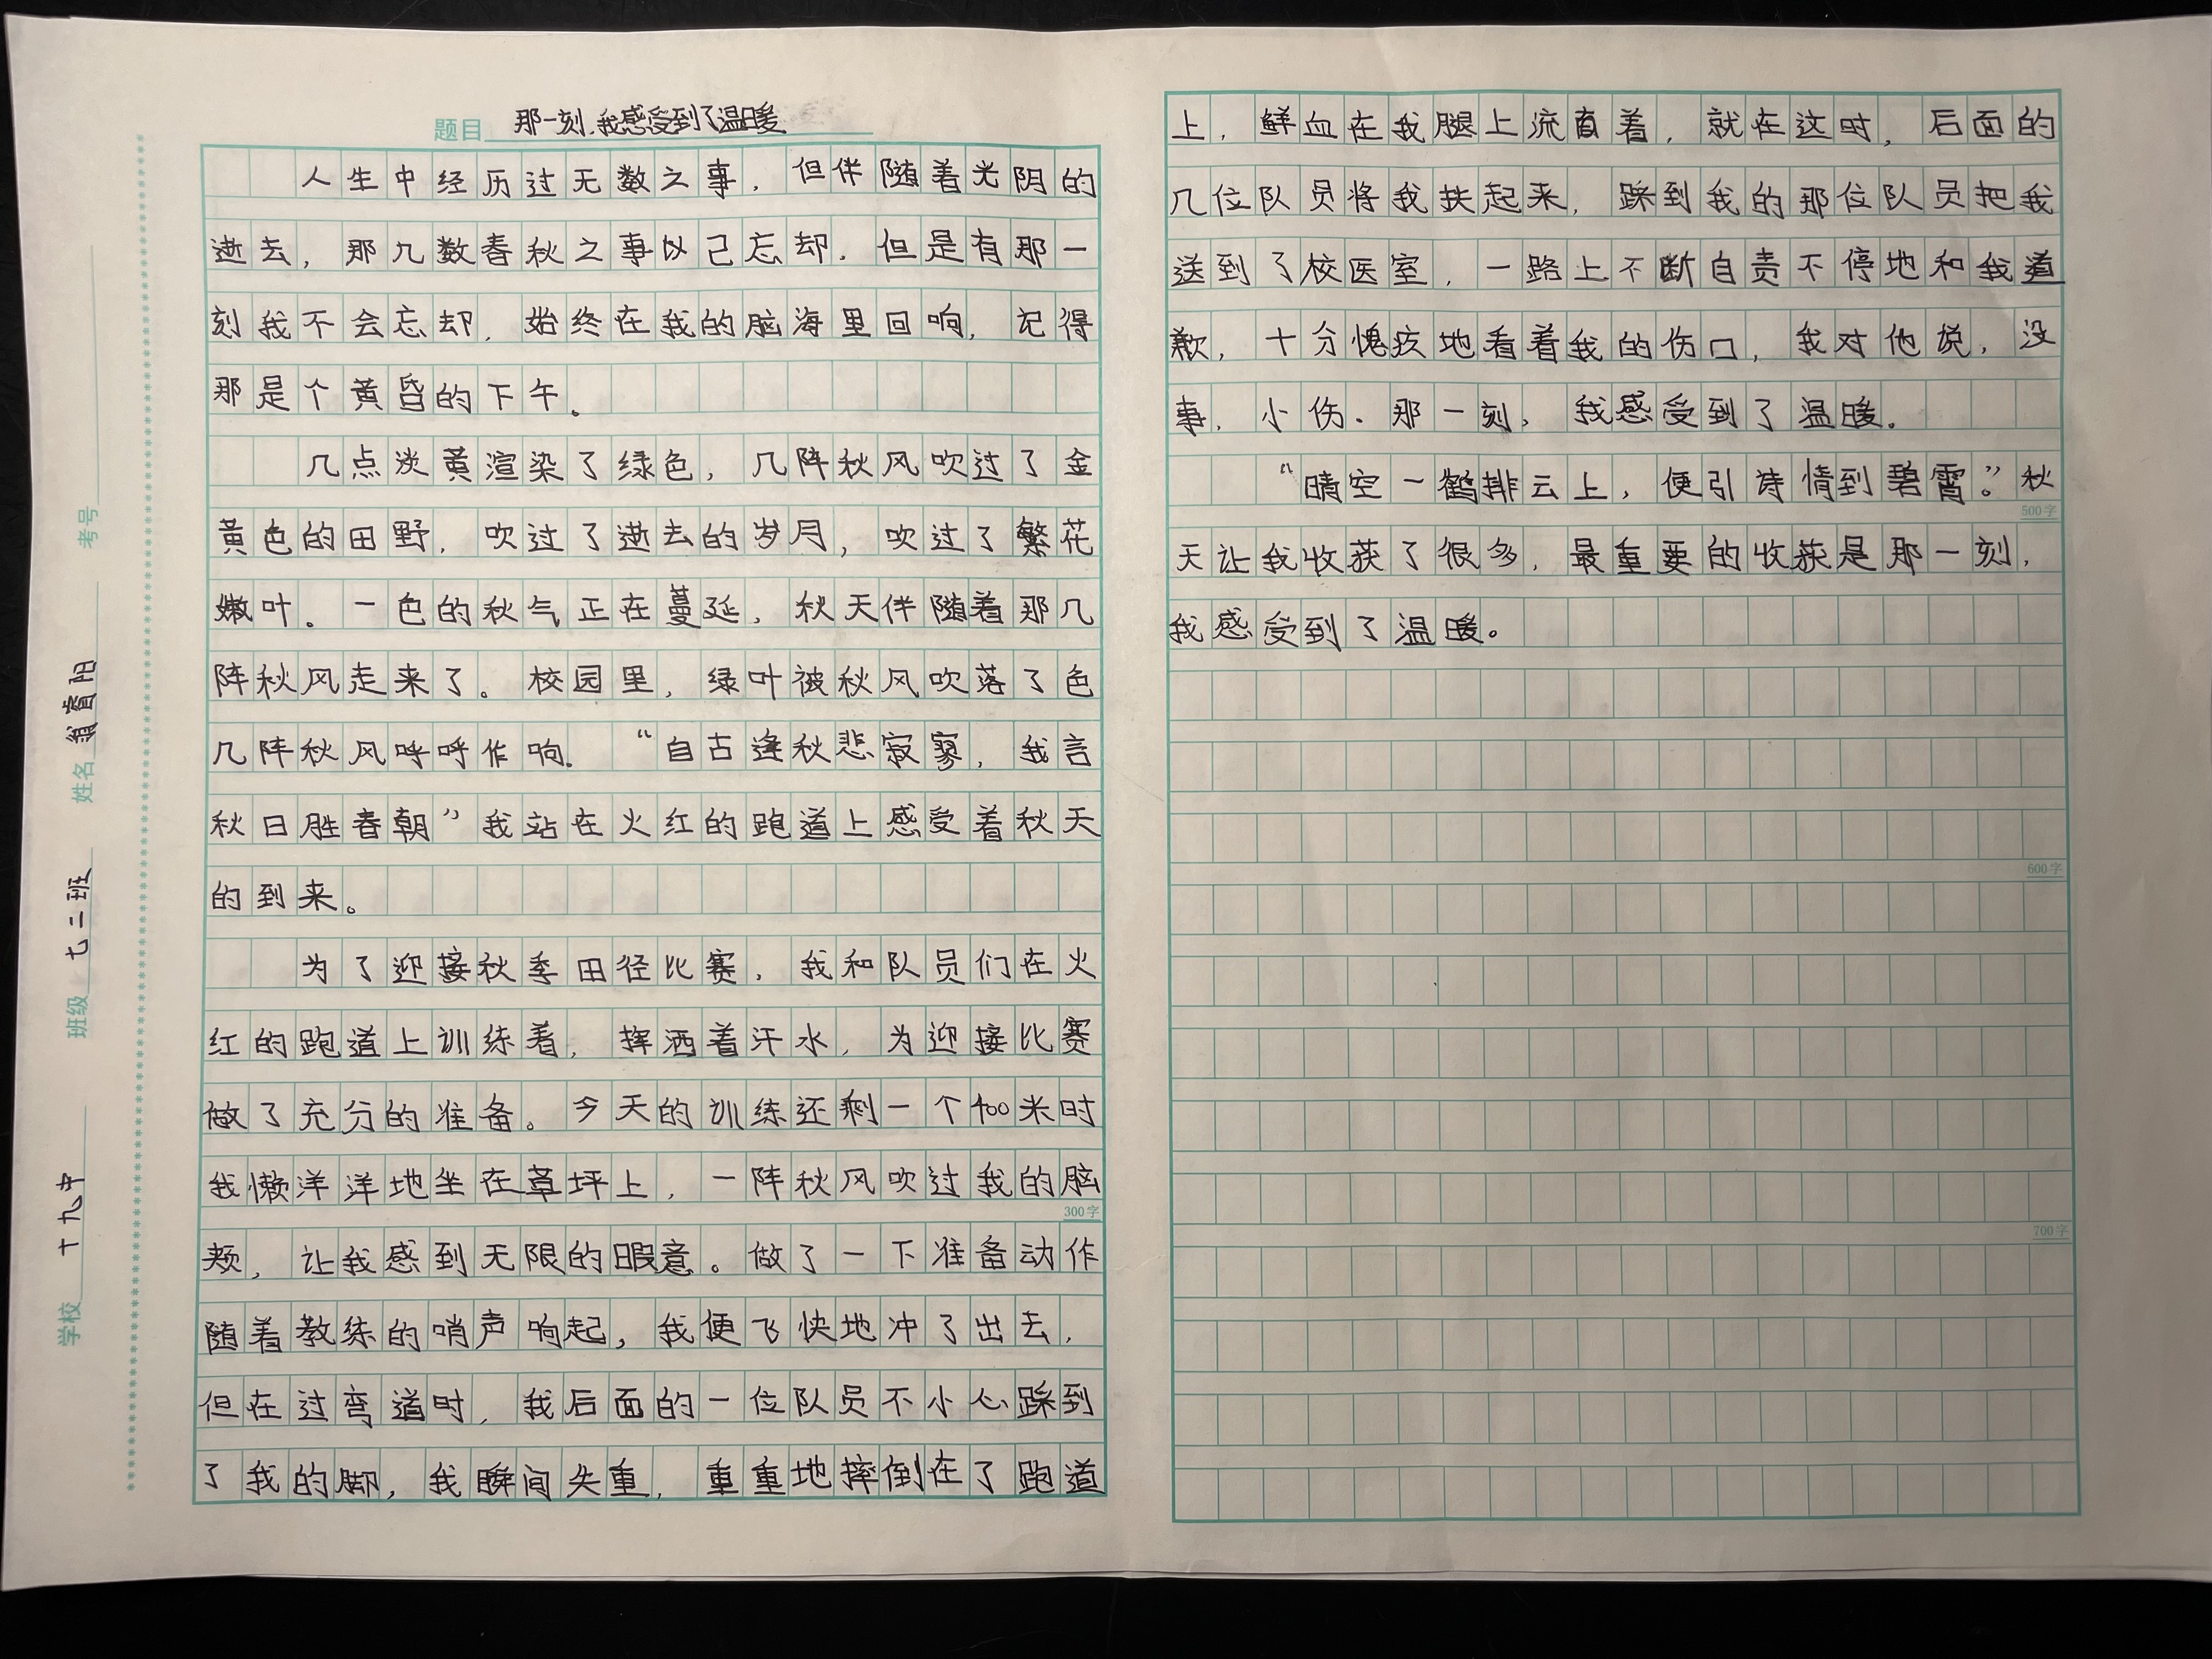 题目 那一刻，我感受到了温暖
人生中经历过无数之事，但伴随着光阴的
逝去，那几数春秋之事以己忘却．但是有那一
刻我不会忘却，始终在我的脑海里回响，记得
那是个黄昏的下午。
几点淡黄渲染了绿色，几阵秋风吹过了金
黄色的田野，吹过了逝去的岁月，吹过了繁花
嫩叶。一色的秋气正在蔓延，秋天伴随着那几
阵秋风走来了。校园里，绿叶被秋风吹落了色
几阵秋风呼呼作响．“自古逢秋悲寂寥，我言
秋日胜春朝”我站在火红的跑道上感受着秋天
的到来。
为了迎接秋季田径比赛，我和队员们在火
红的跑道上训练着，挥洒着汗水，为迎接比赛
做了充分的准备。今天的训练还剩一个400米时
我懒洋洋地坐在草坪上，一阵秋风吹过我的脑
300字
颊，让我感到无限的暇意。做了一下准备动作
随着教练的哨声响起，我便飞快地冲了出去，
但在过弯道时，我后面的一位队员不小心踩到
了我的脚，我瞬间失重，重重地摔倒在了跑道
上，鲜血在我腿上流直着，就在这时，后面的
几位队员将我扶起来，踩到我的那位队员把我
送到了校医室，一路上不断自责不停地和我道
歉，十分愧疚地看着我的伤口，我对他说，没
事，小伤．那一刻，我感受到了温暖。
“晴空一鹤排云上，便引诗情到碧霄”。秋
500字
天让我收获了很多，最重要的收获是那一刻，
我感受到了温暖。
600字
700字
学校 十九中 班级 七二班 姓名 翁睿阳 考号